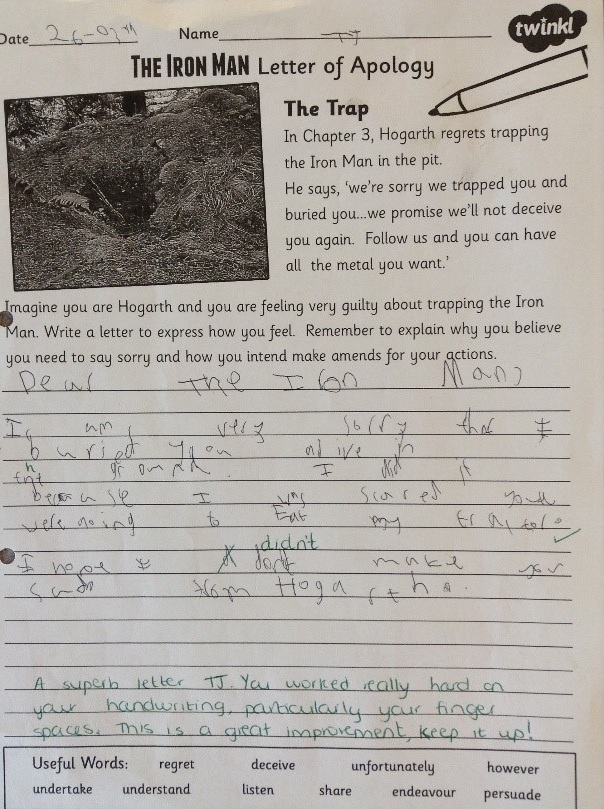 Date 26-03th Name TJ
twinkl
THE IRON MAN Letter of Apology
The Trap
In Chapter 3, Hogarth regrets trapping
the Iron Man in the pit.
He says, 'we're sorry we trapped you and
buried you...we promise we'll not deceive
you again. Follow us and you can have
all the metal you want.'
Imagine you are Hogarth and you are feeling very guilty about trapping the Iron
Man. Write a letter to express how you feel. Remember to explain why you believe
you need to say sorry and how you intend make amends for your actions.
Dear The Iron Man,
I am very sorry that I
buried you alive in
the ground. I did it
because I was scared you
were going to Eat my tractor.
didn't
I hope I don't make you
sad from Hogarth.
A superb letter TJ. You worked really hard on
your handwriting, particularly your finger
spaces. This is a great improvement, keep it up!
Useful Words: regret deceive unfortunately however
undertake understand listen share endeavour persuade